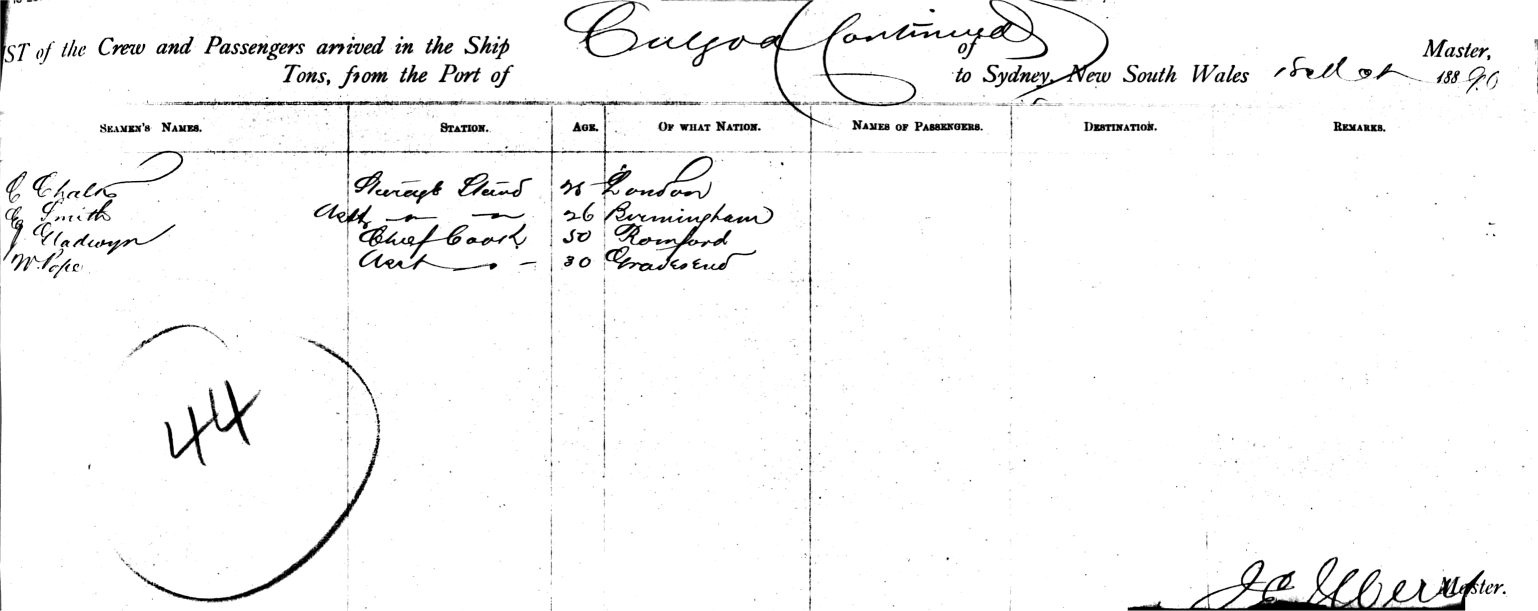 IST of the Crew and Passengers arrived in the Ship Culgoa (Continued) of Master,
Tons, from the Port of to Sydney, New South Wales 188 90
SEAMEN'S NAMES. STATION. AGE. OF WHAT NATION. NAMES OF PASSENGERS. DESTINATION. REMARKS.
C Chalk Stewd London
E Smith Asst " " 26 Birmingham
J Gladwyn Chief Cook 50 Romford
W. Pope Asst " 30 Gravesend
44
Master.